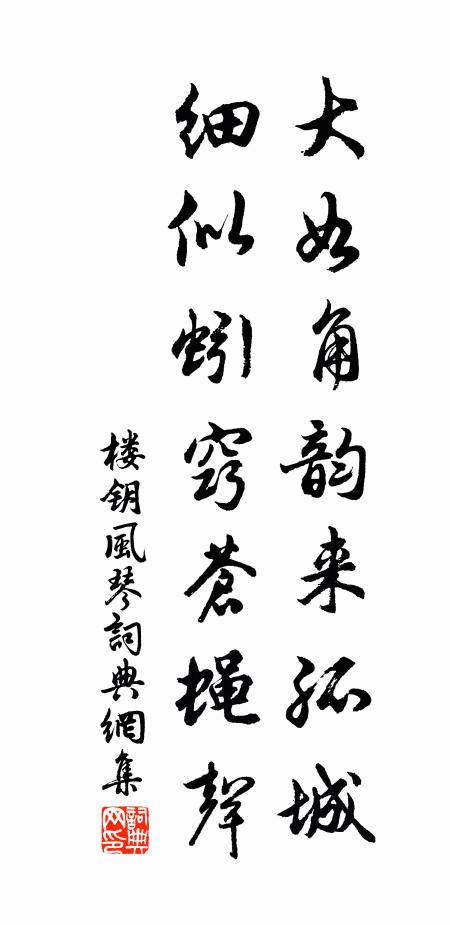 大如角韵来孤城
细似蚓窍苍蝇声
楼钥風琴詞典網集
詞典网印